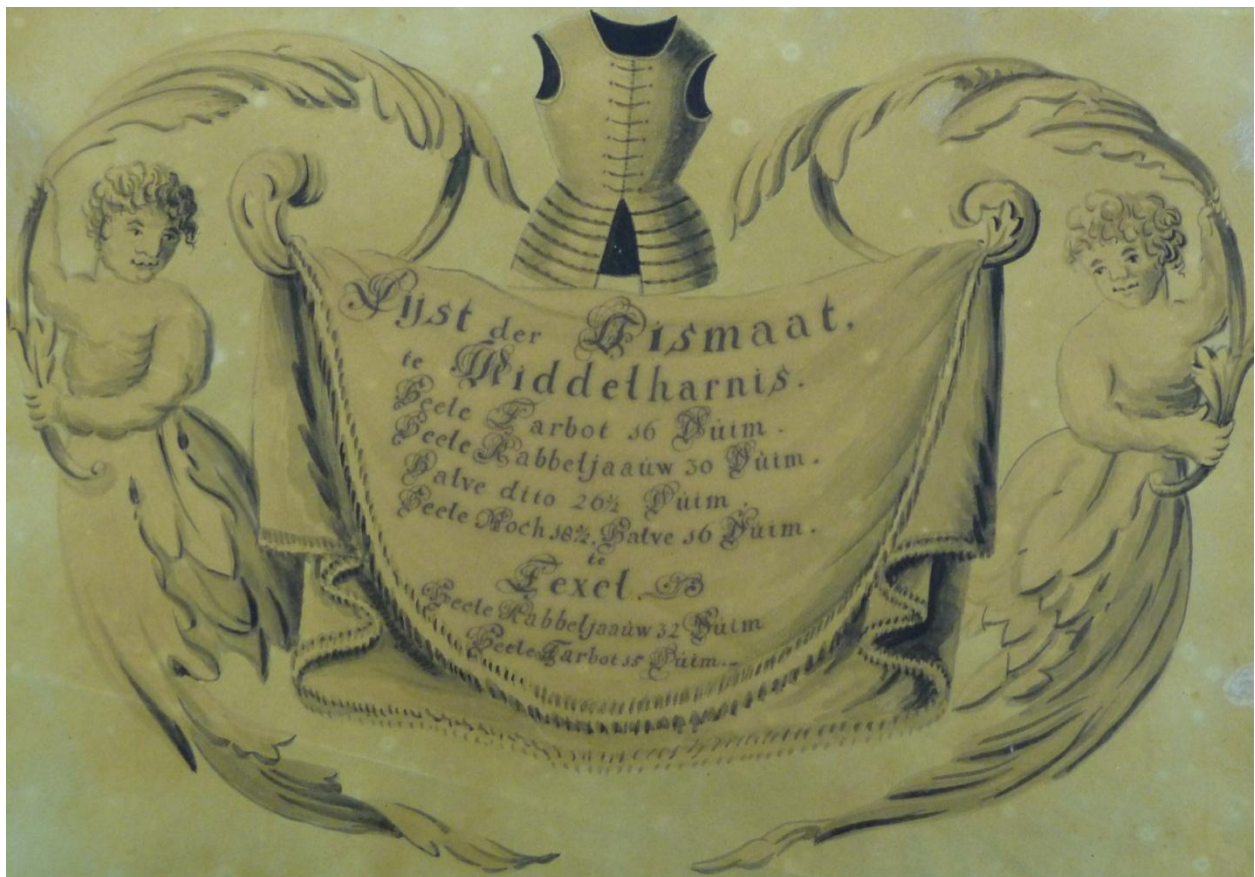 Lijst der Vismaat,
te Middelharnis.
Heele Tarbot 16 Dúim.
Heele Kabbeljaaúw 30 Dúim.
Halve dito 26½ Dúim.
Heele Roch 18½, Halve 16 Dúim.
te
Texel.
Heele Kabbeljaaúw 32 Dúim
Heele Tarbot 15 Dúim.